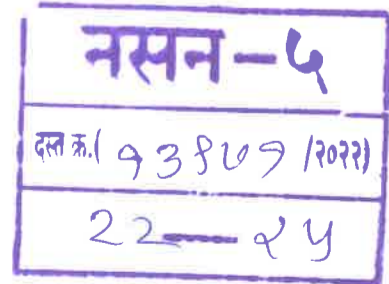 नसन-५
दस्त क्र.( १३९७१ /२०२२)
22 — २५